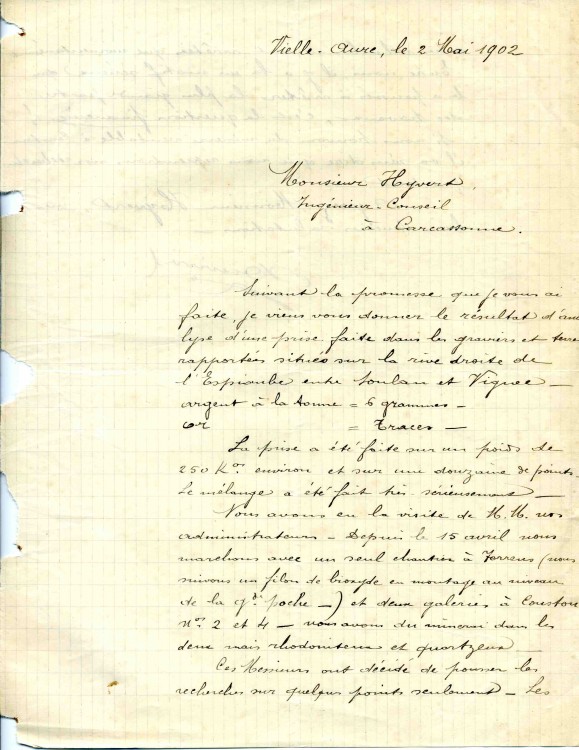 Vielle-Aure, le 2 Mai 1902
Monsieur Hyvert,
Ingénieur-Conseil
à Carcassonne.
Suivant la promesse que je vous ai
faite, je viens vous donner le résultat d'ana
lyse d'une prise faite dans les graviers et terre
rapportés situés sur la rive droite de
l'Espiaube entre Soulan et Vignec —
argent à la tonne = 6 grammes —
Or = Traces —
La prise a été faite sur un poids de
250 Kos environ et sur une douzaine de points.
Le mélange a été fait très sérieusement —
Nous avons eu la visite de M.M. nos
administrateurs — Depuis le 15 avril nous
marchons avec un seul chantier à (nous
suivons un filon de bioxyde en montage au niveau
de la gde poche —) et deux galeries à Coustou
Nos 2 et 4 — nous avons du minerai dans les
deux mais rhodoniteux et quartzeux —
Ces Messieurs ont décidé de pousser les
recherches sur quelques points seulement — Les